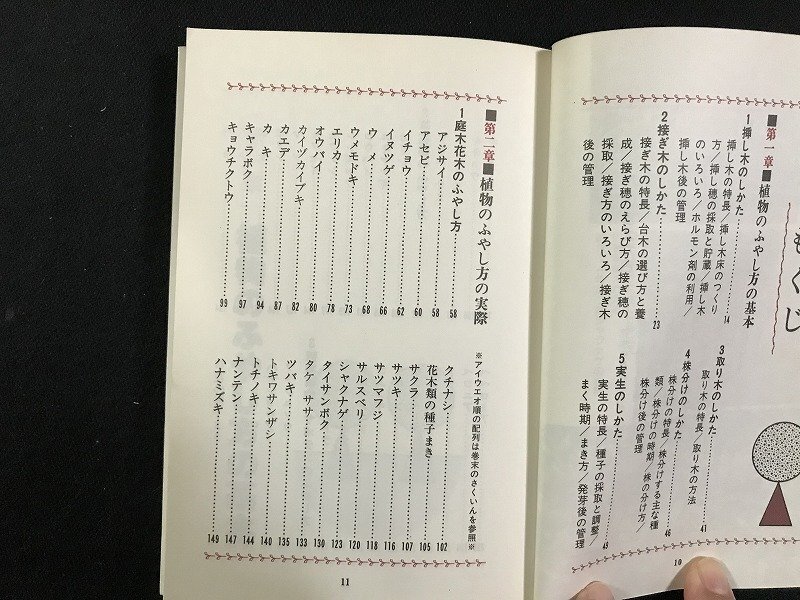 もくじ
■第一章■植物のふやし方の基本
1 挿し木のしかた……14
挿し木の特長／挿し木床のつくり
方／挿し穂の採取と貯蔵／挿し木
のいろいろ／ホルモン剤の利用／
挿し木後の管理
2 接ぎ木のしかた……23
接ぎ木の特長／台木の選び方と養
成／接ぎ穂のえらび方／接ぎ穂の
採取／接ぎ方のいろいろ／接ぎ木
後の管理
3 取り木のしかた……41
取り木の特長／取り木の方法
4 株分けのしかた……46
株分けの特長／株分けする主な種
類／株分けの時期／株の分け方／
株分け後の管理
5 実生のしかた……49
実生の特長／種子の採取と調整／
まく時期／まき方／発芽後の管理
10
■第二章■植物のふやし方の実際
※アイウエオ順の配列は巻末のさくいんを参照※
1 庭木花木のふやし方……58
アジサイ……58
アセビ……60
イチョウ……62
イヌツゲ……66
ウメ……68
ウメモドキ……73
エリカ……78
オウバイ……80
カイヅカイブキ……82
カエデ……87
カキ……94
キャラボク……97
キョウチクトウ……99
クチナシ……102
花木類の種子まき……105
サクラ……107
サツキ……116
サツマフジ……118
サルスベリ……120
シャクナゲ……123
タイサンボク……130
タケ ササ……133
ツバキ……135
トキワサンザシ……140
トチノキ……144
ナンテン……147
ハナミズキ……149
11